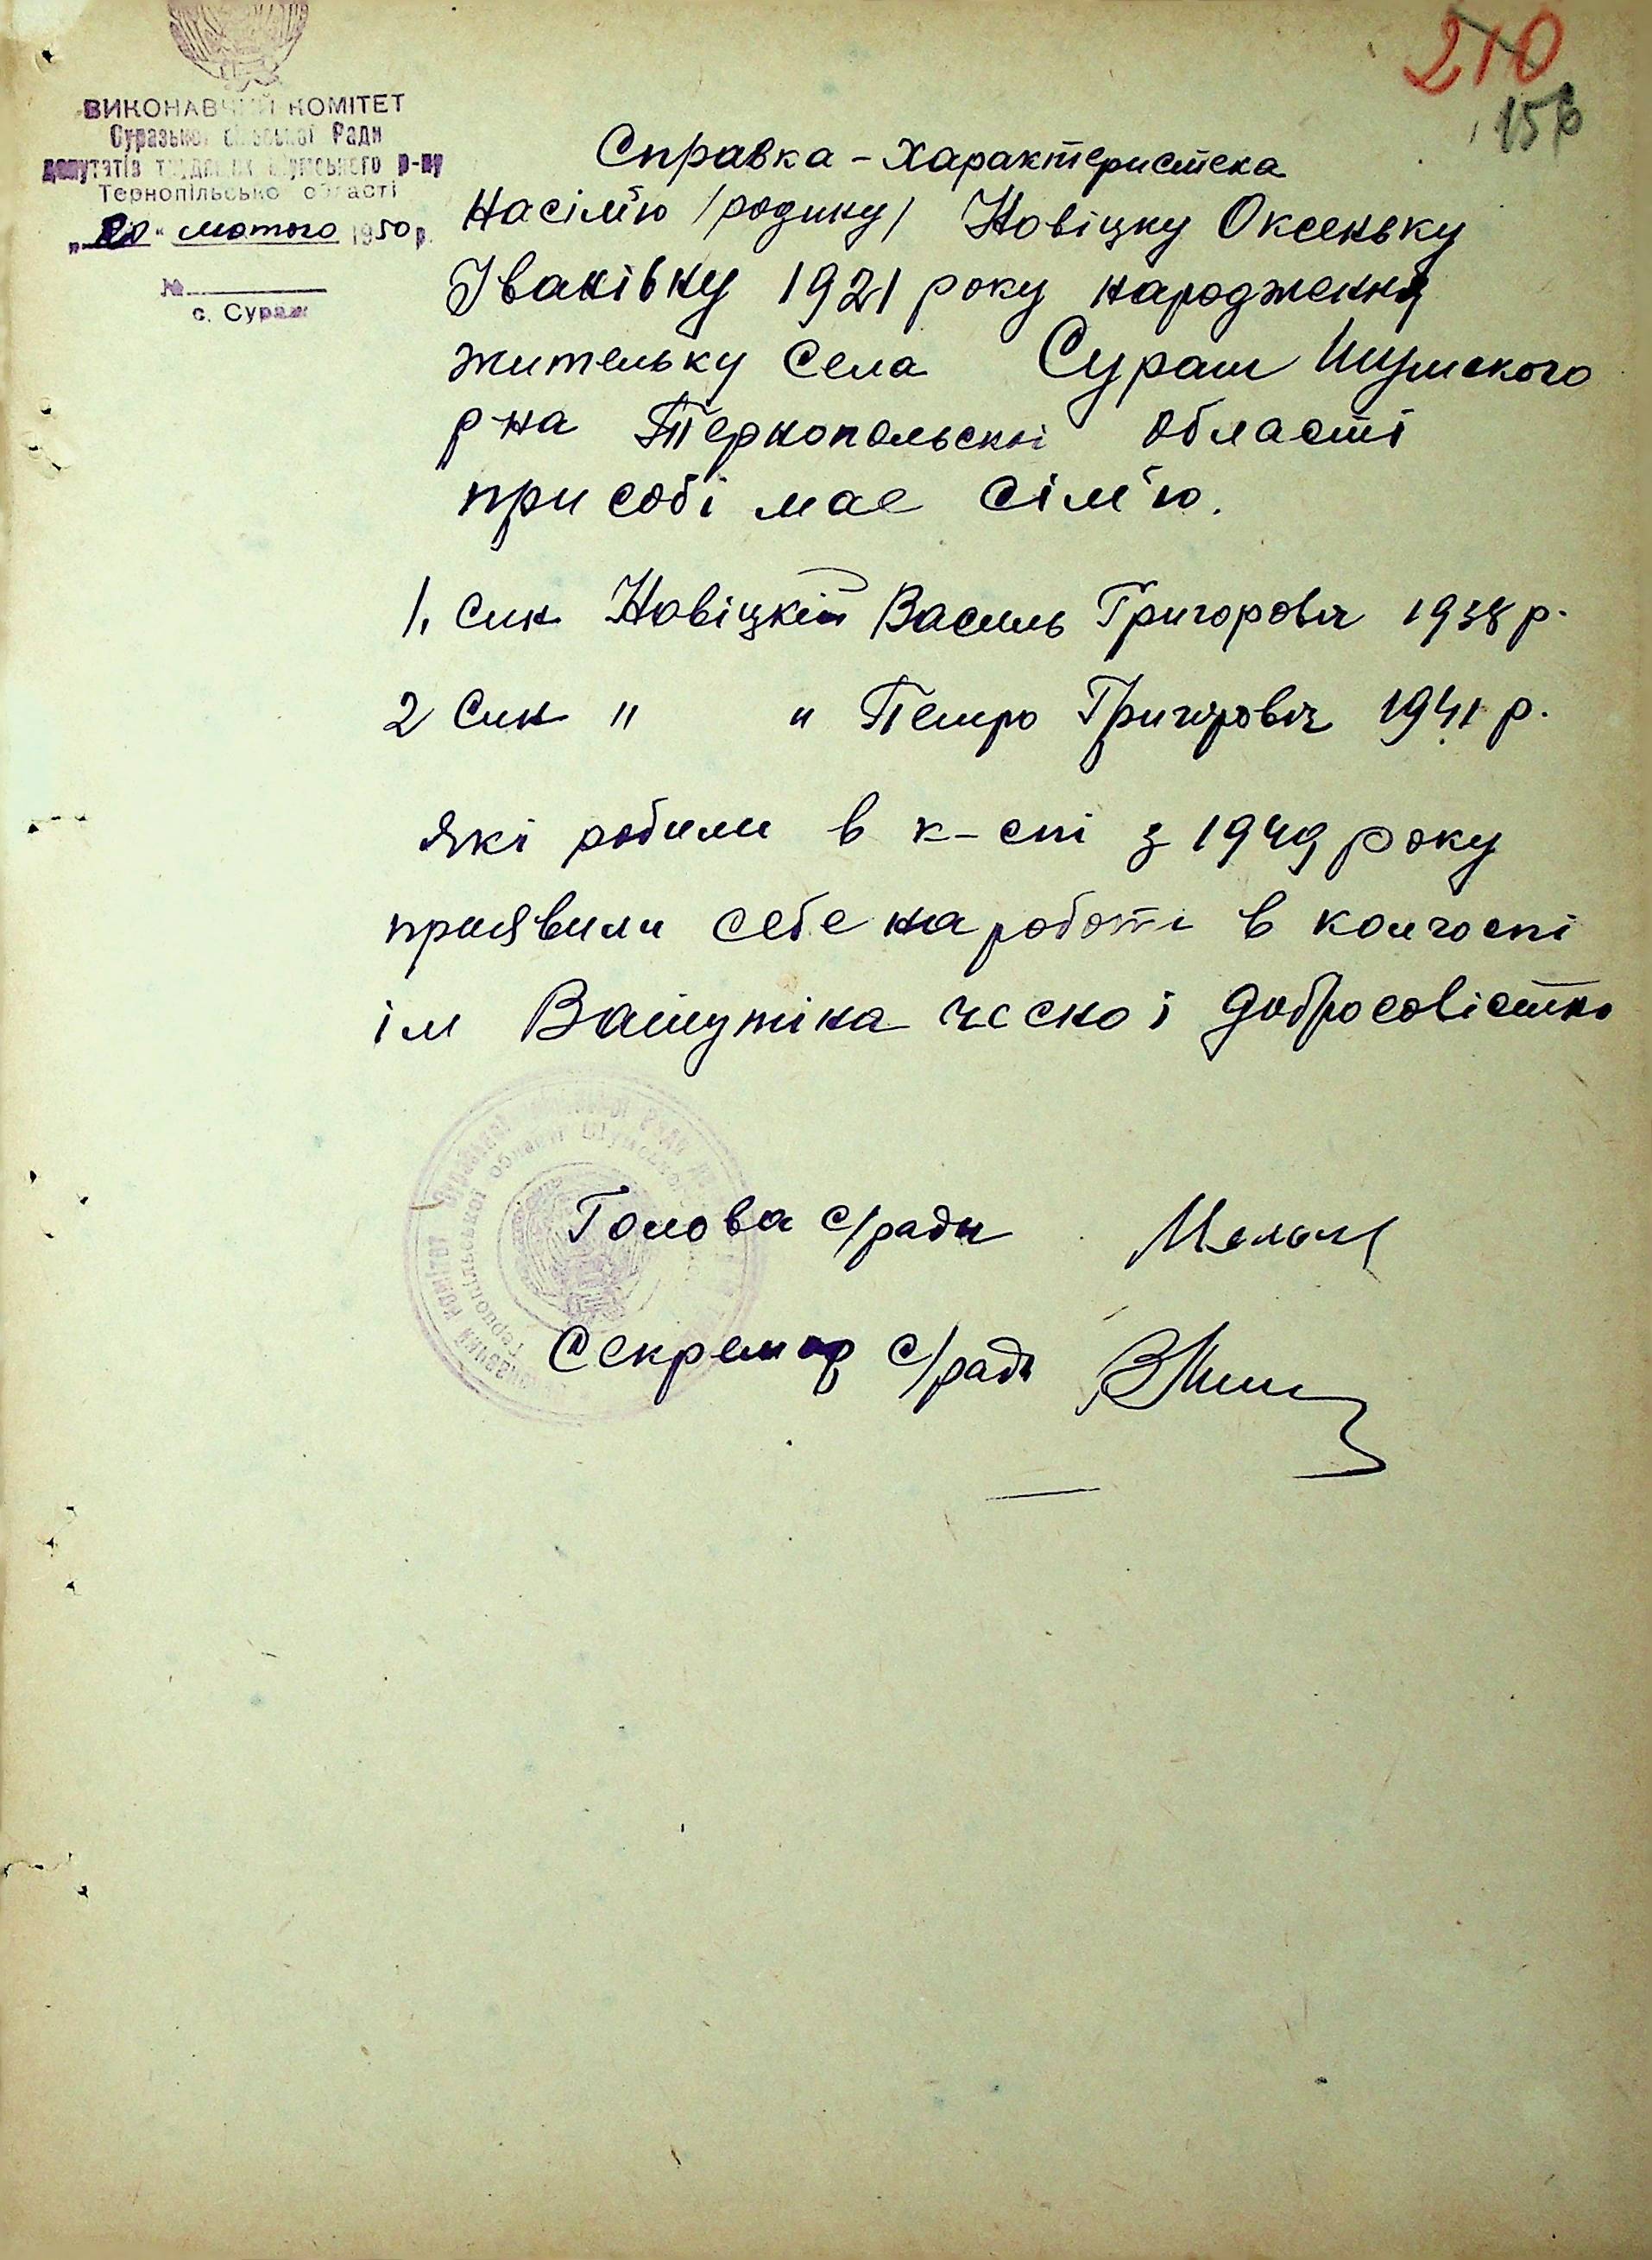 210
156
ВИКОНАВЧИЙ КОМІТЕТ
Суразької сільської Ради
депутатів трудящих Шумського р-ну
Тернопільської області
"20" лютого 1950 р.
№
с. Сураж
Справка - характеристека
На сім'ю /родину/ Новіцку Оксеньку
Іванівну 1921 року народження
жительку села Сураш Шумского
р-на Тернопольскі області
при собі має сім'ю.
1. Син Новіцкій Василь Григоровіч 1938 р.
2 Син " " Петро Григоровіч 1941 р.
які робили в к-спі з 1949 року
приявили себе на роботі в колгоспі
ім Ватутіна чесно і добросовістно
Голова с/ради
Секретар с/ради